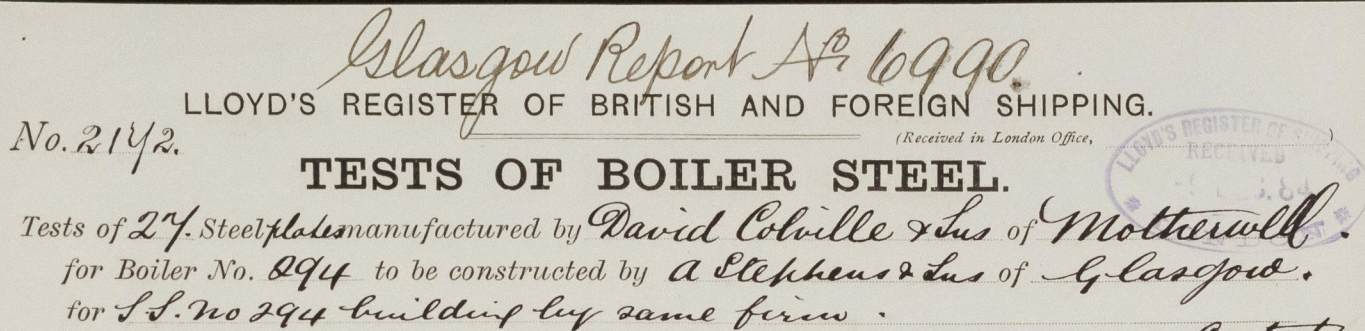 Glasgow Report No 6990.
LLOYD'S REGISTER OF BRITISH AND FOREIGN SHIPPING.
No. 2172.
(Received in London Office, )
LLOYD'S REGISTER OF SHIPPING
RECEIVED
TESTS OF BOILER STEEL.
Tests of 27. Steel plates manufactured by David Colville & Sns of Motherwell.
for Boiler No. 294 to be constructed by A Stephens & Sns of Glasgow.
for S.S. no 294 building by same firm.